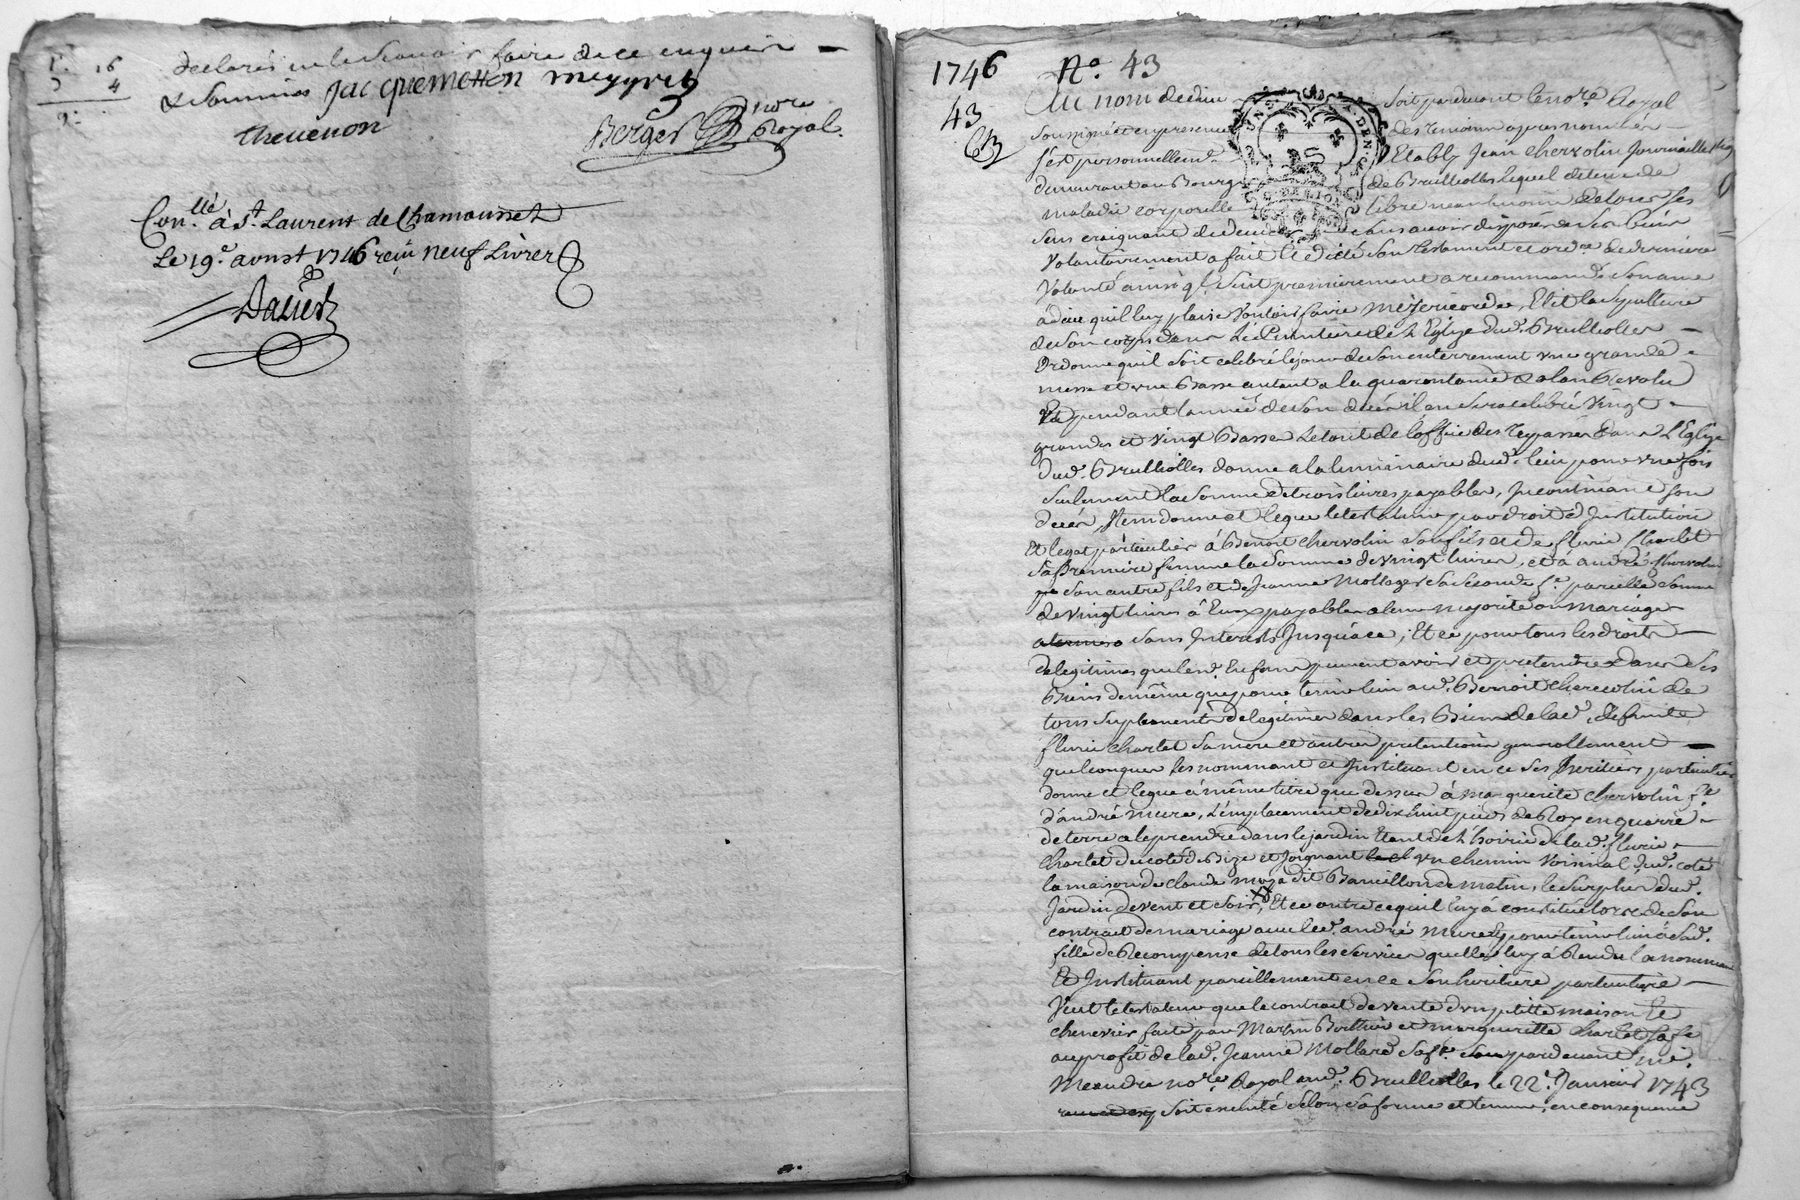 declarés ne le scavoir faire de ce enquis
& Sommés Jacquemetton meygret
thevenon
Berger nore Royal.
1. 16
3 4
9.
Conllé à St. Laurent de Chamousset
Le 19e. aoust 1746 reçu neuf Livres
1746 No. 43
43
Au nom de dieu soit pardevant le nore. Royal
soussigné et en presence des temoins apres nommés
fut personnellemt. Etably Jean Chervolin Journaillier
demeurant au Bourg de Brullioles lequel detenu de
maladie corporelle libre neanmoins de tous ses
sens craignant de deceder sans avoir disposé de ses biens
Volontairement a fait et dicté son testament et ordce. de derniere
Volonté ainsi q. suit premierement a recommandé son ame
à dieu qu'il luy plaise vouloir faire mizericorde, Elit la sepulture
de son corps dans le Cimitiere de L'Eglise dud. Brullioles
Ordonne qu'il soit celebré le jour de son enterrement une grande
messe et une Basse autant a la quarantaine & a l'an revolu
Et pendant l'année de son decès il en sera celebré vingt
grandes et vingt Basses le tout de l'office des trepassés dans L'Eglise
dud. Brullioles donne a la luminaire dud. lieu pour une fois
seulement la somme de trois livres payables, incontinant son
decès, Item donne et legue le testateur par droit d'Institution
Et legat particulier à Benoit Chervolin son fils et de fleurie Charlet
sa Premiere femme la somme de vingt livres, et à andré Chervolin
son autre fils et de Jeanne Mollard sa seconde fe. pareille somme
de vingt livres à Eux payables a leur majorité ou mariage
sans Interests Jusqu'a ce; Et ce pour tous les droits
de legitimes que lesd. Enfans peuvent avoir et pretendre dans ses
Biens de même que pour tenir lieu aud. Benoit Chervolin de
tous suplements de legitimes dans les Biens de lad. defunte
fleurie Charlet sa mere et autres pretentions generallement
quelconques les nommant et Instituant en ce ses heritiers particuliers
donne et legue à même titre que dessus à Marguerite Chervolin fe.
d'andré mure, L'emplacement de dix huit pieds de Roy en quarré
de terre a le prendre dans le jardin Etant de L'hoirie de lad. fleurie
Charlet du coté de Bize et Joignant un chemin voisinal dud. coté
la maison de Claude de matin, le surplus dud.
Jardin de vent et soir, Et ce outre ce qu'il luy a constitué lors de son
contract de mariage avec led. andré Mure et pour tenir lieu à sad.
fille de Recompense de tous les services quelle luy à Rendu la nommant
Et Instituant pareillement en ce son heritiere particuliere
Veut le testateur que le contract de vente d'un petitte maison et
chenevier faite par Martin et margueritte Charlet sa fe
au profit de lad. Jeanne Mollard sa fe. pardevant me.
nore Royal aud. Brullioles le 22e. Janvier 1743
soit executé selon sa forme et teneur, en consequence